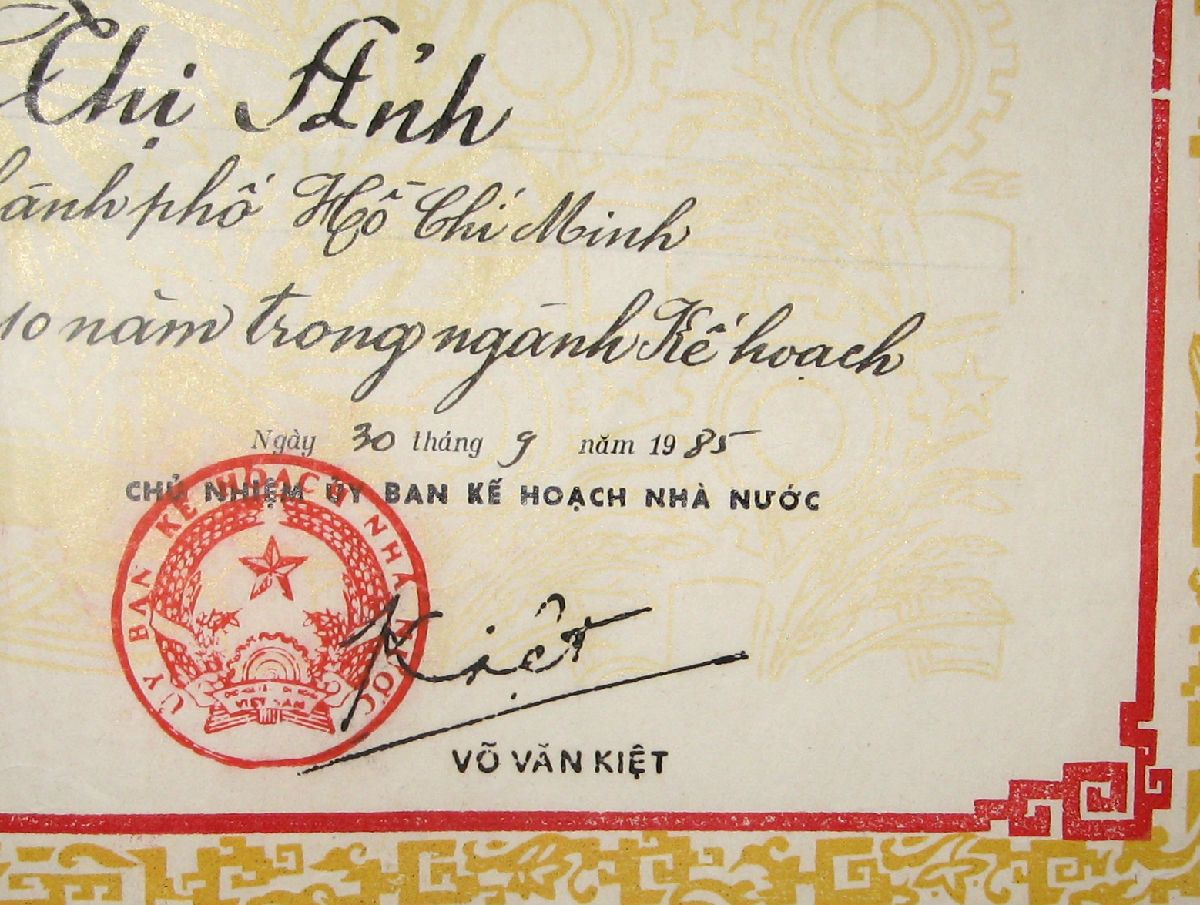 Thị Ảnh
hành phố Hồ Chí Minh
10 năm trong ngành Kế hoạch
Ngày 30 tháng 9 năm 1985
CHỦ NHIỆM ỦY BAN KẾ HOẠCH NHÀ NƯỚC
ỦY BAN KẾ HOẠCH NHÀ NƯỚC
VIỆT NAM
Kiệt
VÕ VĂN KIỆT